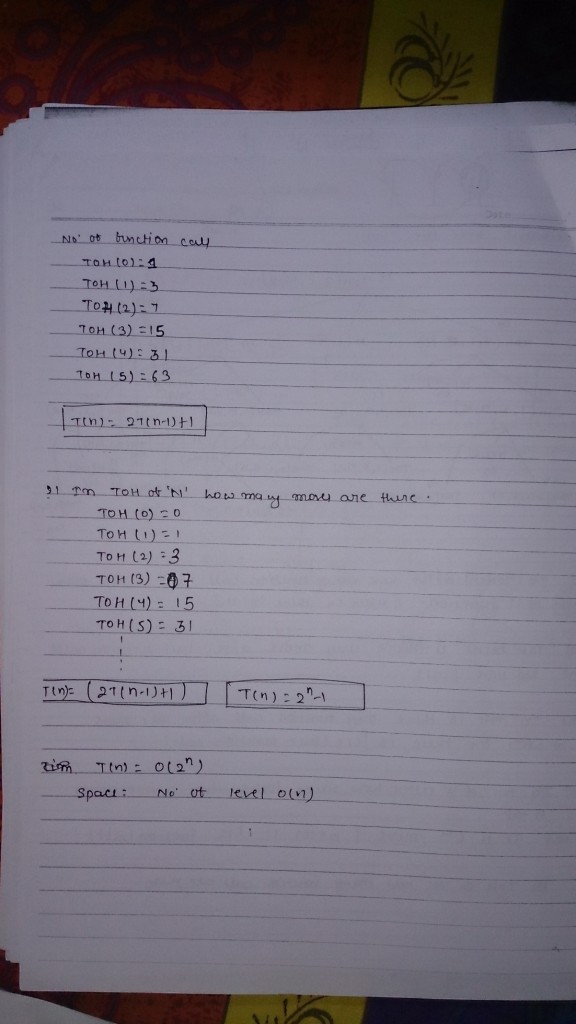 No. of function call
TOH (0) = 1
TOH (1) = 3
TOH (2) = 7
TOH (3) = 15
TOH (4) = 31
TOH (5) = 63
T(n) = 2T(n-1)+1
In TOH of 'N' how many moves are there.
TOH (0) = 0
TOH (1) = 1
TOH (2) = 3
TOH (3) = 7
TOH (4) = 15
TOH (5) = 31
T(n) = (2T(n-1)+1) T(n) = 2ⁿ-1
T(n) = O(2ⁿ)
Space: No. of level O(n)